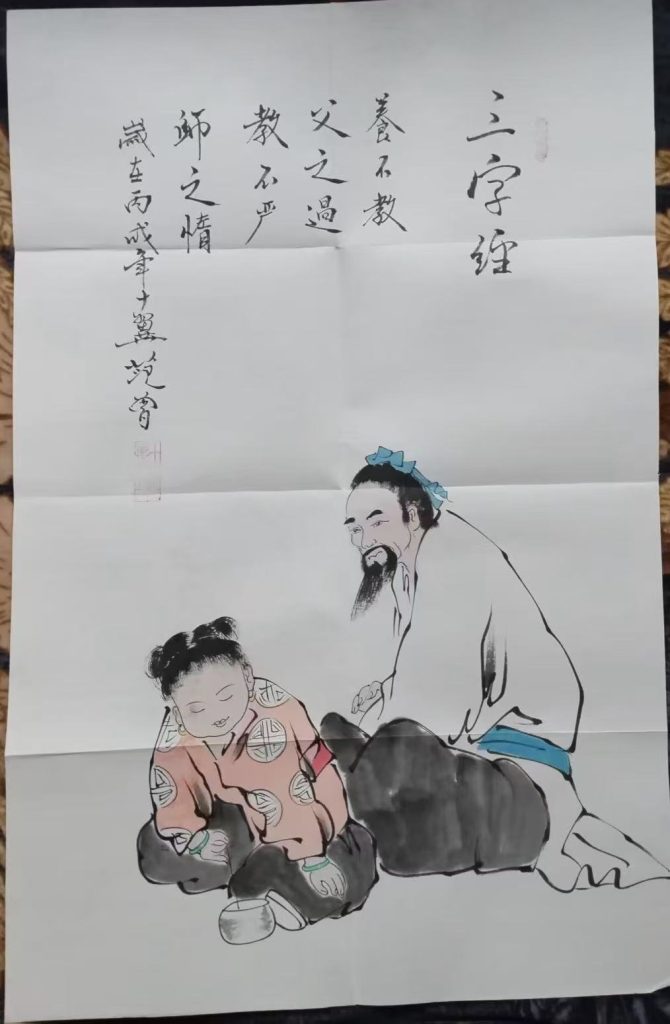 三字經
養不教
父之過
教不严
師之情
歲在丙戌年十翼范曾